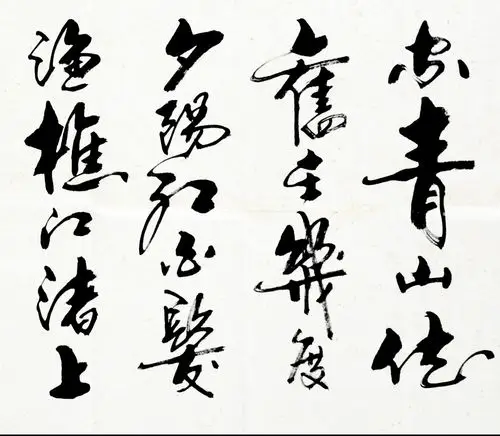 空青山依
舊在幾度
夕陽紅白髮
漁樵江渚上